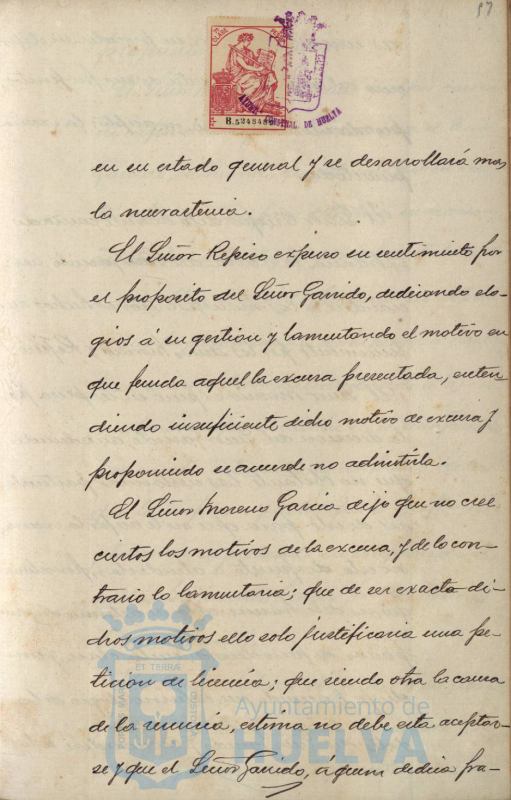 87
B.5245484
AYUN INDUSTRIAL DE HUELVA
en su estado general y se desarrollará mas
la neurastenia.
El Señor Repiso expuso su sentimiento por
el proposito del Señor Garrido, dedicando elo-
gios á su gestion y lamentando el motivo en
que funda aquel la excusa presentada, enten-
diendo insuficiente dicho motivo de excusa y
proponiendo se acuerde no admitirla.
El Señor Moreno Garcia dijo que no cree
ciertos los motivos de la excusa, y de lo con-
trario lo lamentaria; que de ser exacta di-
chos motivos ello solo justificaria una pe-
ticion de licencia; que siendo otra la causa
de la renuncia, estima no debe esta aceptar-
se y que el Señor Garrido, á quien dedica fra-
ET TERRÆ
Ayuntamiento de
HUELVA